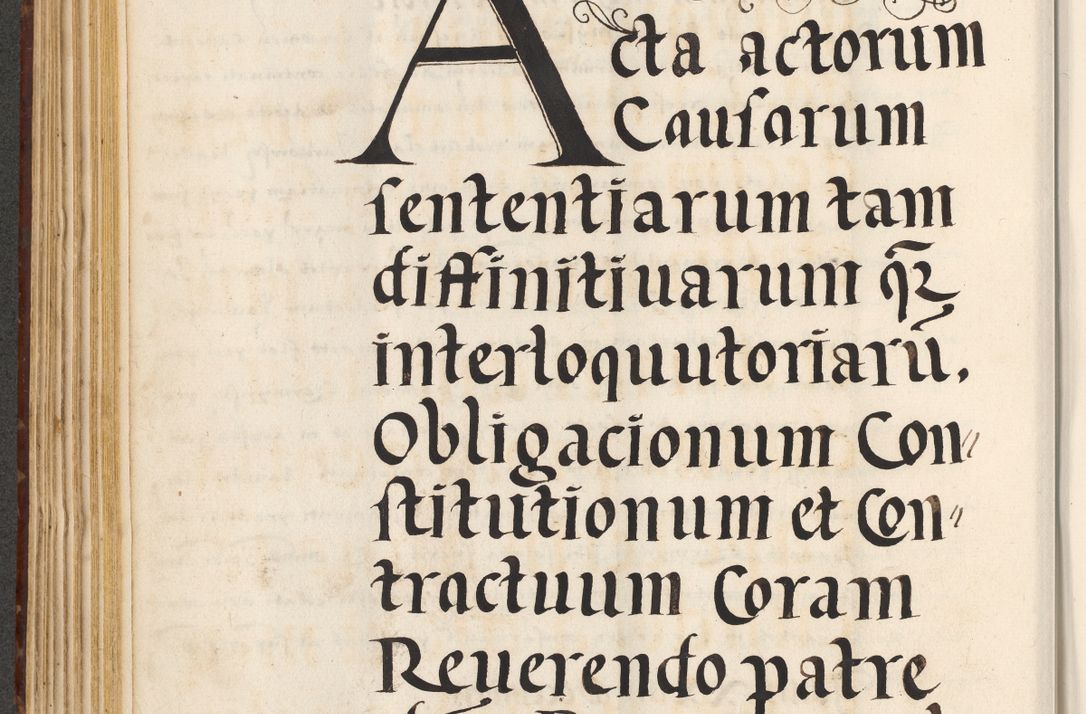 Acta actorum
Cauſarum
ſententiarum tam
diffinitiuarum qꝫ̃
interloquutoriarū.
Obligacionum Con〃
ſtitutionum et Con〃
tractuum Coram
Reuerendo patre